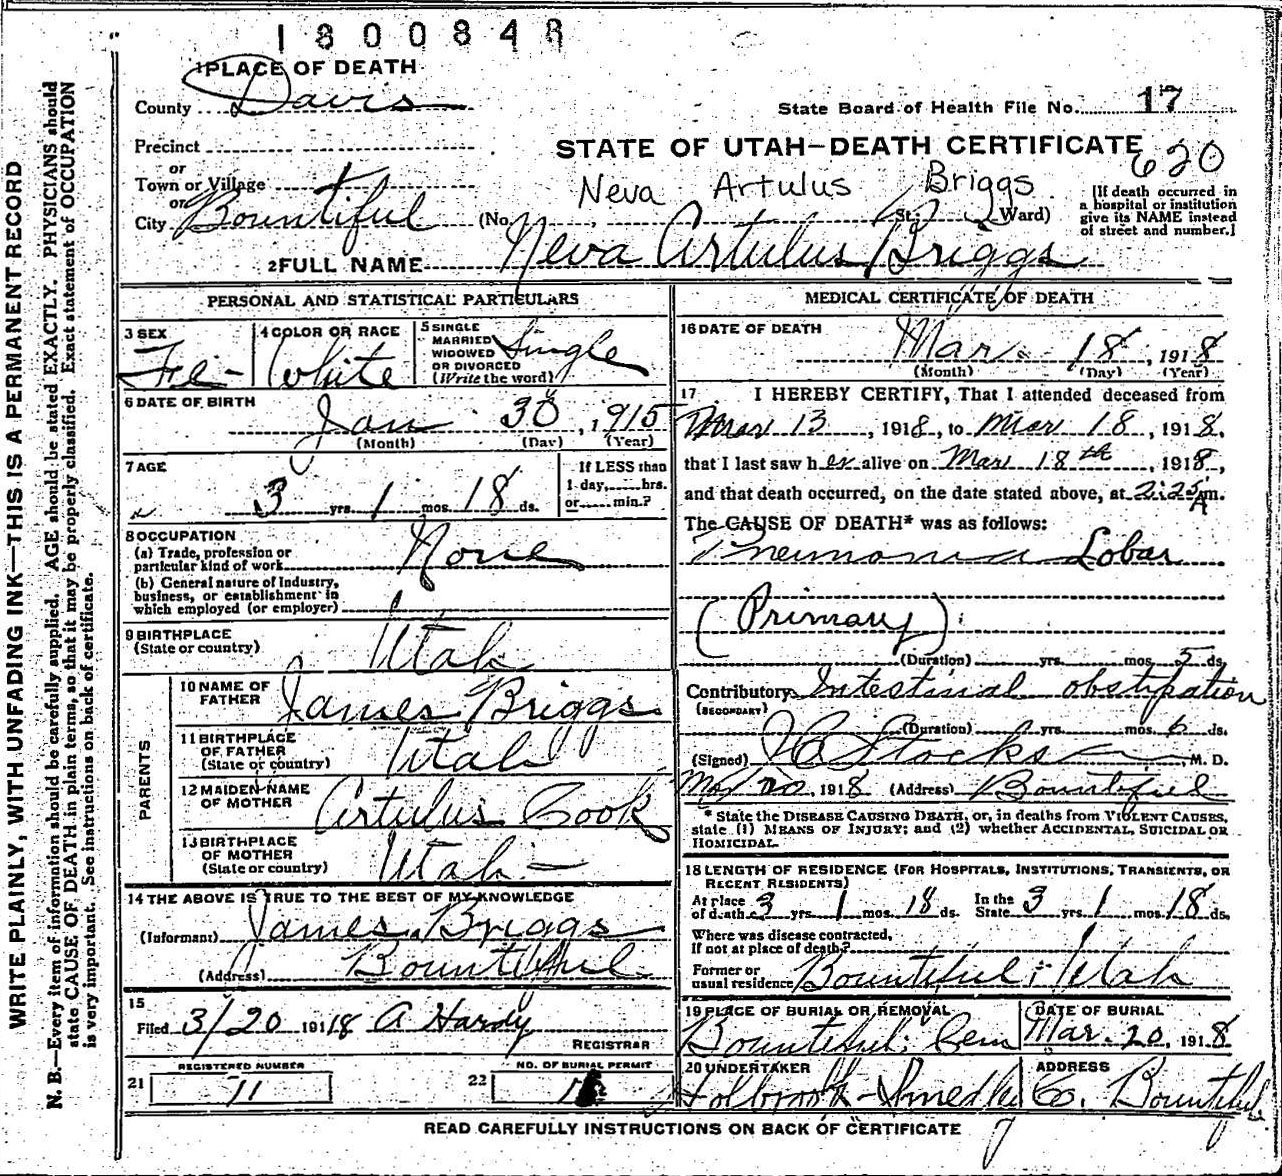 1800848
1 PLACE OF DEATH
County Davis
State Board of Health File No. 17
Precinct
STATE OF UTAH—DEATH CERTIFICATE
620
or
Town or Village
or
City Bountiful (No. St; Ward)
Neva Artulus Briggs
[If death occurred in
a hospital or institution
give its NAME instead
of street and number.]
2 FULL NAME Neva Artulus Briggs
PERSONAL AND STATISTICAL PARTICULARS
3 SEX
Fe-
4 COLOR OR RACE
White
5 SINGLE
MARRIED
WIDOWED
OR DIVORCED
(Write the word)
Single
6 DATE OF BIRTH
Jan 30, 1915
(Month) (Day) (Year)
7 AGE
3 yrs. 1 mos. 18 ds.
If LESS than
1 day, hrs.
or min.?
8 OCCUPATION
(a) Trade, profession or
particular kind of work None
(b) General nature of Industry,
business, or establishment in
which employed (or employer)
9 BIRTHPLACE
(State or country) Utah
PARENTS
10 NAME OF
FATHER James Briggs
11 BIRTHPLACE
OF FATHER
(State or country) Utah
12 MAIDEN NAME
OF MOTHER Artulus Cook
13 BIRTHPLACE
OF MOTHER
(State or country) Utah-
14 THE ABOVE IS TRUE TO THE BEST OF MY KNOWLEDGE
(Informant) James Briggs
(Address) Bountiful
15
Filed 3/20 1918 A Hardy
REGISTRAR
REGISTERED NUMBER
21 11
NO. OF BURIAL PERMIT
22
MEDICAL CERTIFICATE OF DEATH
16 DATE OF DEATH
Mar. 18, 1918
(Month) (Day) (Year)
17 I HEREBY CERTIFY, That I attended deceased from
Mar 13, 1918, to Mar 18, 1918,
that I last saw her alive on Mar 18th, 1918,
and that death occurred, on the date stated above, at 2:25 A m.
The CAUSE OF DEATH* was as follows:
Pneumonia Lobar
(Primary)
(Duration) yrs. mos. 5 ds.
Contributory Intestinal obstipation
(SECONDARY)
(Duration) yrs. mos. 6 ds.
(Signed) Stocks, M. D.
Mar 20, 1918 (Address) Bountiful
* State the DISEASE CAUSING DEATH, or, in deaths from VIOLENT CAUSES,
state (1) MEANS OF INJURY; and (2) whether ACCIDENTAL, SUICIDAL OR
HOMICIDAL.
18 LENGTH OF RESIDENCE (FOR HOSPITALS, INSTITUTIONS, TRANSIENTS, OR
RECENT RESIDENTS)
At place
of death 3 yrs. 1 mos. 18 ds.
In the
State 3 yrs. 1 mos. 18 ds.
Where was disease contracted,
if not at place of death?
Former or
usual residence Bountiful; Utah
19 PLACE OF BURIAL OR REMOVAL
Bountiful; Cem
DATE OF BURIAL
Mar. 20, 1918
20 UNDERTAKER
Holbrook-Smedley Co.
ADDRESS
Bountiful
READ CAREFULLY INSTRUCTIONS ON BACK OF CERTIFICATE
WRITE PLAINLY, WITH UNFADING INK—THIS IS A PERMANENT RECORD
N. B.—Every item of information should be carefully supplied. AGE should be stated EXACTLY. PHYSICIANS should
state CAUSE OF DEATH in plain terms, so that it may be properly classified. Exact statement of OCCUPATION
is very important. See instructions on back of certificate.